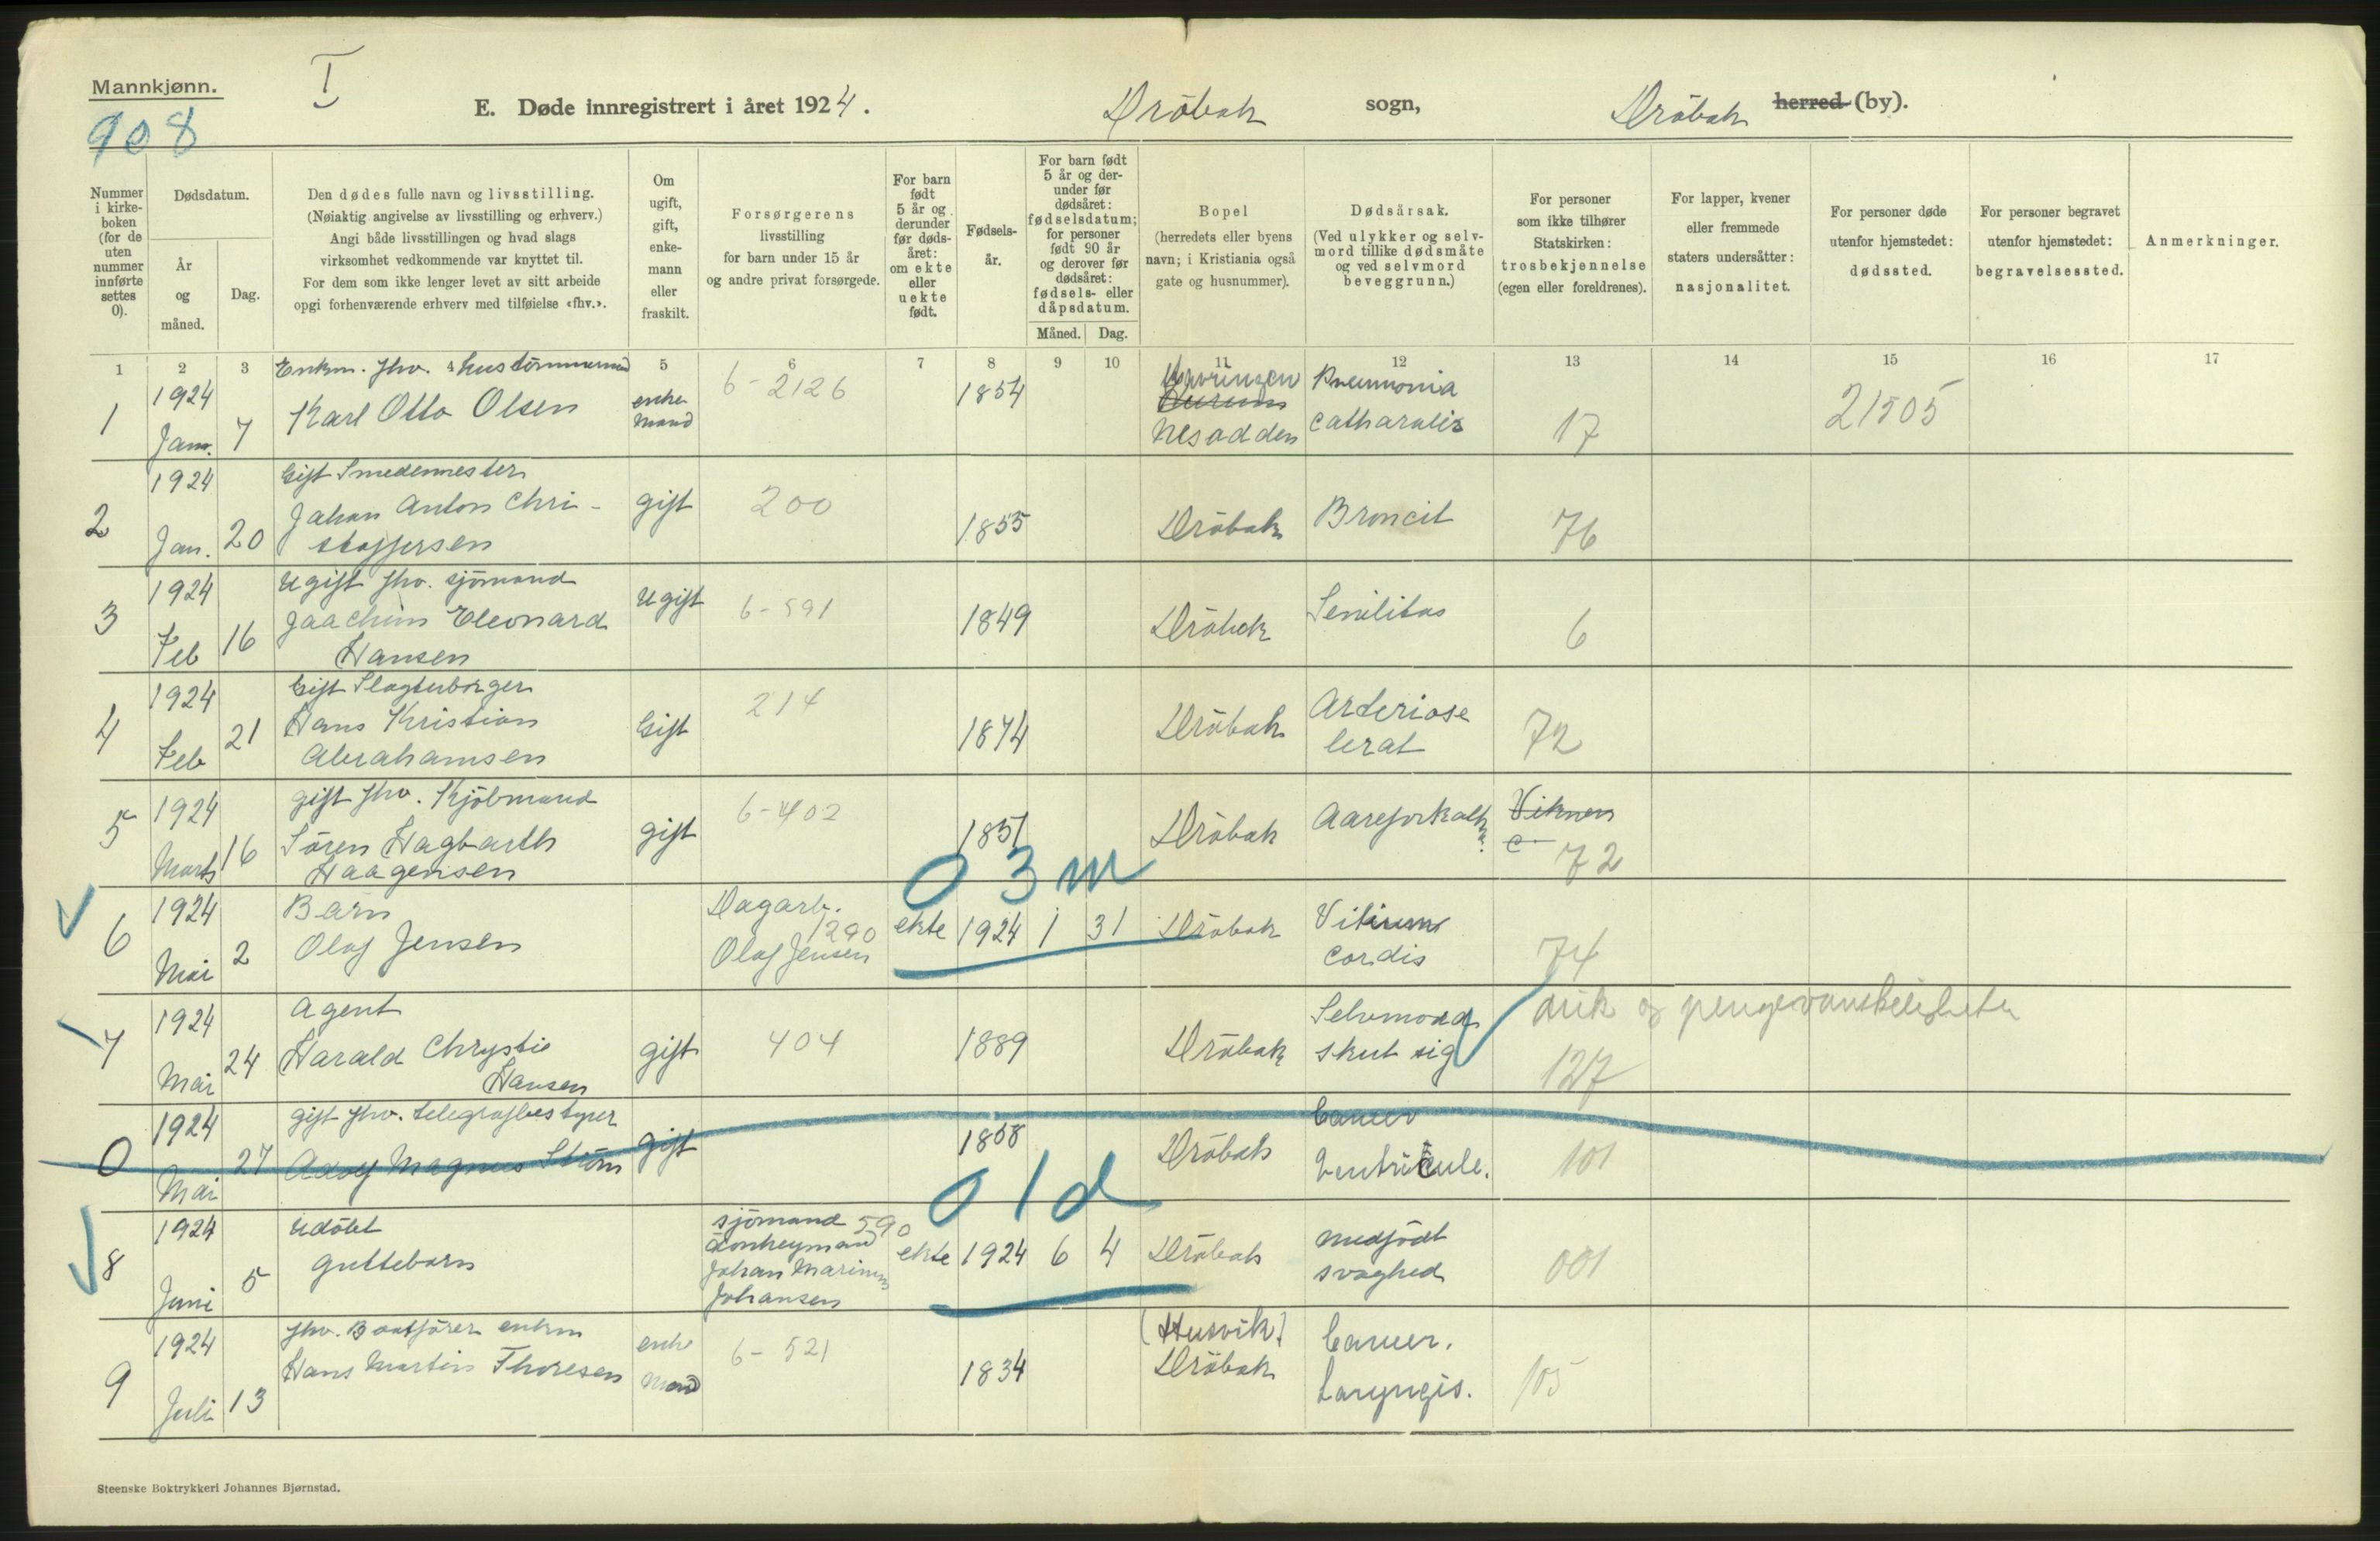 Mannkjønn.
I
908
E. Døde innregistrert i året 1924.
Dröbak sogn,
Dröbak herred (by).
Nummer i kirke-boken (for de uten nummer innførte settes 0).
Dødsdatum.
År og måned.
Dag.
Den dødes fulle navn og livsstilling.
(Nøiaktig angivelse av livsstilling og erhverv.)
Angi både livsstillingen og hvad slags
virksomhet vedkommende var knyttet til.
For dem som ikke lenger levet av sitt arbeide
opgi forhenværende erhverv med tilføielse «fhv.».
Om ugift, gift, enke-mann eller fraskilt.
Forsørgerens
livsstilling
for barn under 15 år
og andre privat forsørgede.
For barn født 5 år og derunder før døds-året: om ekte eller uekte født.
Fødsels-år.
For barn født 5 år og der-under før dødsåret: fødselsdatum; for personer født 90 år og derover før dødsåret: fødsels- eller dåpsdatum.
Måned. Dag.
Bopel
(herredets eller byens
navn; i Kristiania også
gate og husnummer).
Dødsårsak.
(Ved ulykker og selv-
mord tillike dødsmåte
og ved selvmord
beveggrunn.)
For personer
som ikke tilhører
Statskirken:
trosbekjennelse
(egen eller foreldrenes).
For lapper, kvener
eller fremmede
staters undersåtter:
nasjonalitet.
For personer døde
utenfor hjemstedet:
dødssted.
For personer begravet
utenfor hjemstedet:
begravelsessted.
Anmerkninger.
1 2 3 4 5 6 7 8 9 10 11 12 13 14 15 16 17
Enkm. fhv. hustömmermd
1 1924 Jan. 7 Karl Otto Olsen enke mand 6-2126 1854
Nesodden Pneumonia catharalis 17 21505
Gift Smedemester
2 1924 Jan. 20 Johan Anton Chri-
stoffersen gift 200 1855 Dröbak Broncit 76
Ugift fhv. sjömand
3 1924 Feb 16 Jaachim Eleonard
Hansen Ugift 6-591 1849 Dröbak Senilitas 6
Gift Slagterborger
4 1924 Feb 21 Hans Kristian
Abrahamsen Gift 214 1874 Dröbak Arteriose
lerat 72
gift fhv. Kjöbmand
5 1924 Marts 16 Sören Hagbarth
Haagensen gift 6-402 1851 Dröbak Aareforkalkn. 72
03m
6 1924 Mai 2 Barn
Olaf Jensen Dagarb. 1290
Olaf Jensen ekte 1924 1 31 Dröbak Vitium
cordis 74
7 1924 Mai 24 Agent
Harald Chrystie
Hansen gift 404 1889 Dröbak Selvmord
skut sig drik og pengevanskeligheter
127
gift fhv. telegrafbestyrer
0 1924 Mai 27 Adolf Magnus Ström gift 1858 Dröbak Cancer
Ventricule. 101
01d
8 1924 Juni 5 Udöbt
guttebarn sjömand 590
donkeymand
Johan Marinius
Johansen ekte 1924 6 4 Dröbak medfödt
svaghed 001
fhv. Baatförer enkm
9 1924 Juli 13 Hans Martin Thoresen enke
mand 6-521 1834 (Husvik)
Dröbak Cancer.
Laryngis. 105
Steenske Boktrykkeri Johannes Bjørnstad.